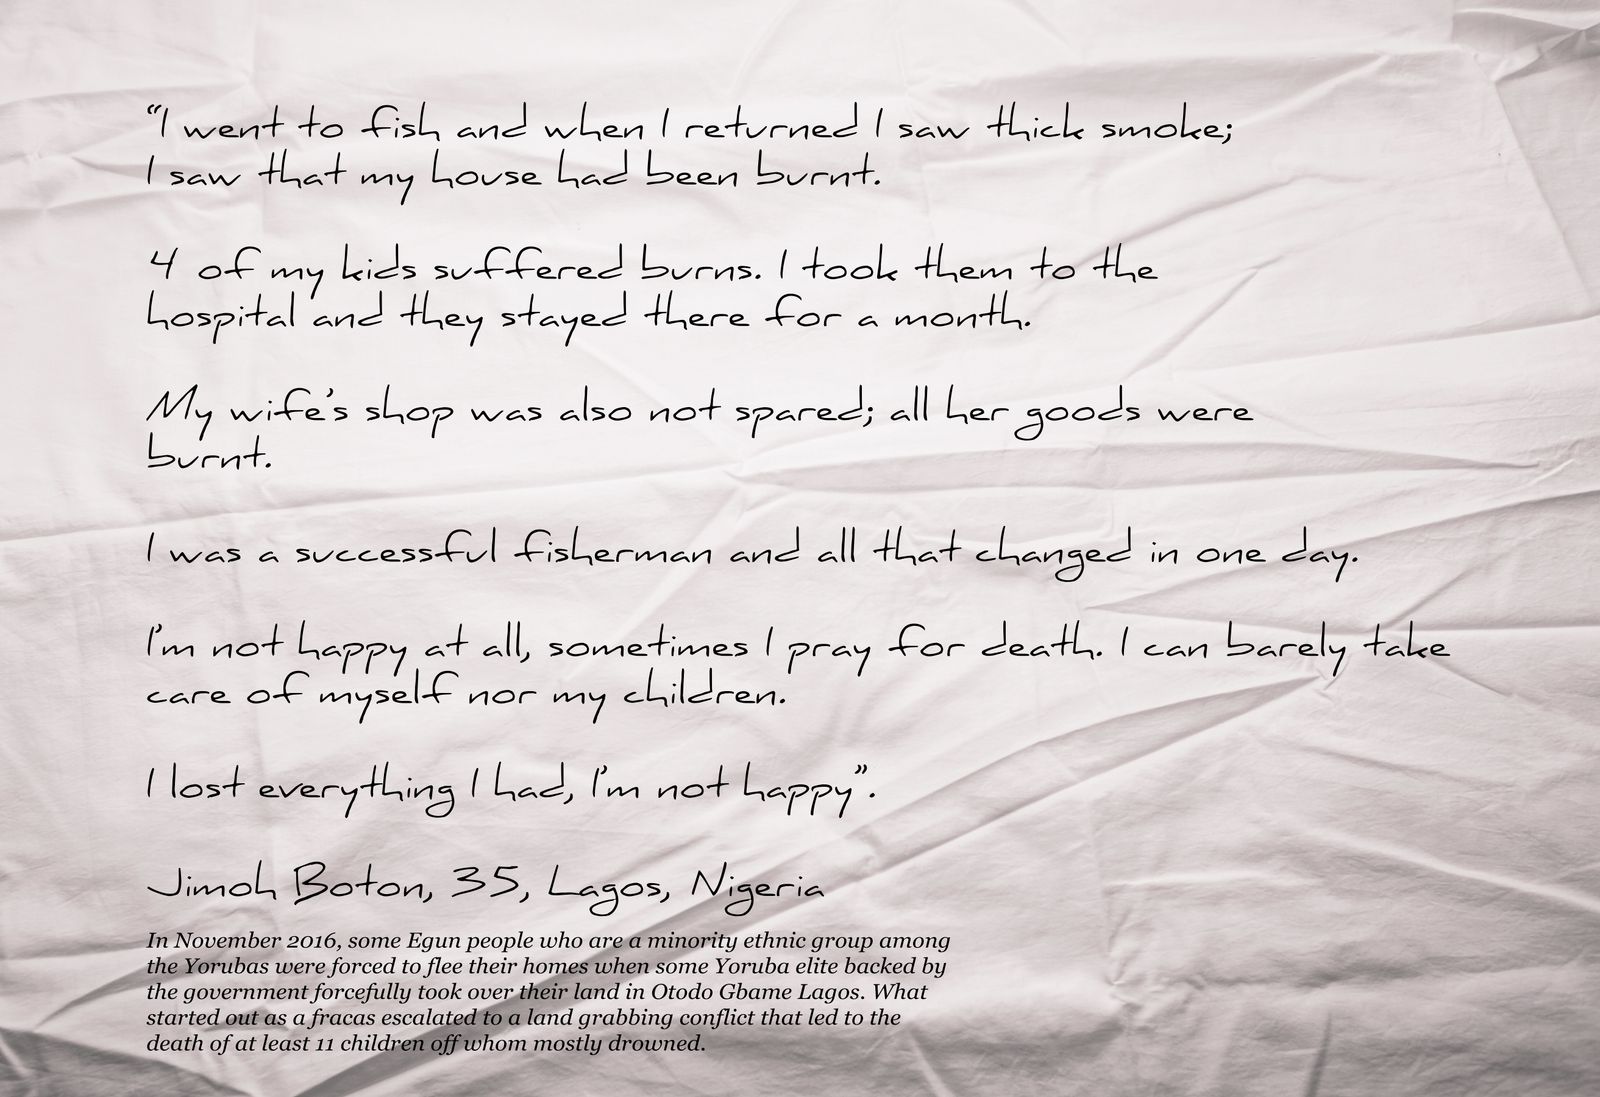 “I went to fish and when I returned I saw thick smoke;
I saw that my house had been burnt.
4 of my kids suffered burns. I took them to the
hospital and they stayed there for a month.
My wife’s shop was also not spared; all her goods were
burnt.
I was a successful fisherman and all that changed in one day.
I’m not happy at all, sometimes I pray for death. I can barely take
care of myself nor my children.
I lost everything I had, I’m not happy”.
Jimoh Boton, 35, Lagos, Nigeria
In November 2016, some Egun people who are a minority ethnic group among
the Yorubas were forced to flee their homes when some Yoruba elite backed by
the government forcefully took over their land in Otodo Gbame Lagos. What
started out as a fracas escalated to a land grabbing conflict that led to the
death of at least 11 children off whom mostly drowned.